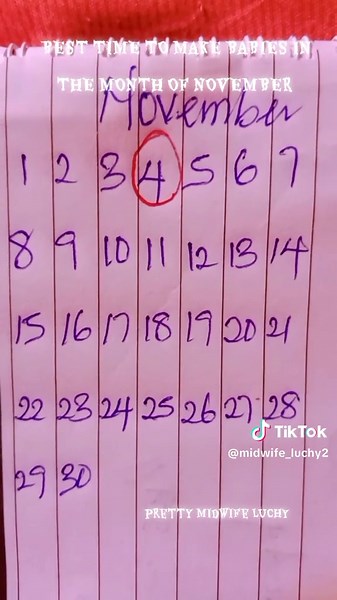 BEST TIME TO MAKE BABIES IN
THE MONTH OF NOVEMBER
November
1 2 3 4 5 6 7
8 9 10 11 12 13 14
15 16 17 18 19 20 21
22 23 24 25 26 27 28
TikTok
@midwife_luchy2
29 30
PRETTY MIDWIFE LUCHY